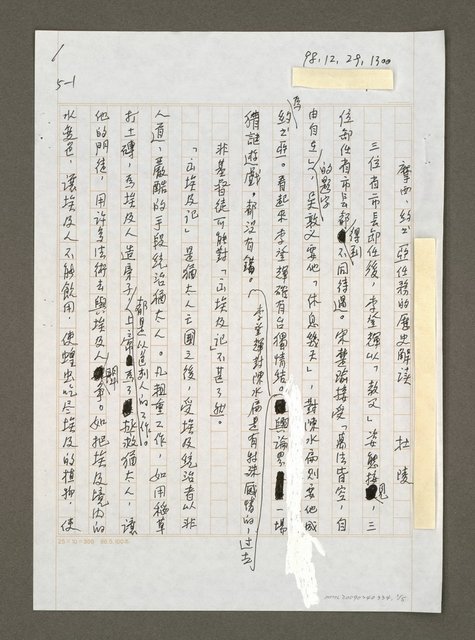 98.12.29, 1300
5-1
摩西、約書亞任務的歷史解讀
杜陵
三位省市長卸任後，李登輝以「教父」姿態接見，三
位卸任省市長都得到不同待遇。宋楚瑜接受「萬法皆空，自
由自在」的題字，吳敦義要他「休息幾天」，對陳水扁則要他成為
約書亞。看起來李登輝確有台獨情結。輿論界一場
猜謎遊戲，都沒有錯。
李登輝對陳水扁是有特殊感情的，過去
非基督徒可能對「出埃及記」不甚了解。
「出埃及記」是猶太人亡國之後，受埃及統治者以非
人道、嚴酷的手段統治猶太人。凡粗重工作，如用稻草
打土磚，為埃及人造房子，都是以色列人的工作。上帝為了拯救猶太人，讓
他的門徒，用許多法術去與埃及人鬥爭。如把埃及境內的
水變色，讓埃及人不能飲用，使蝗虫吃尽埃及的植物，使
25×10=300